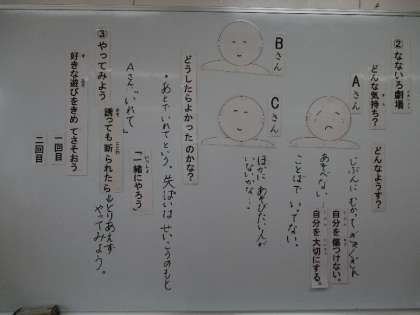 ②なないろ劇場
どんな気持ち？
どんなようす？
Aさん
じぶんに
自分を傷つけない。
自分を大切にする。
あそべない…
ことばで いってない。
ほかに あそびたい人が
いないかな…
Bさん
Cさん
どうしたらよかったのかな？
・あとでいれてという。失ぱいはせいこうのもと
Aさん「いれて」
「一緒にやろう」
③やってみよう 誘っても断られたら
とりあえず
やってみよう。
好きな遊びをきめてさそおう
一回目
二回目